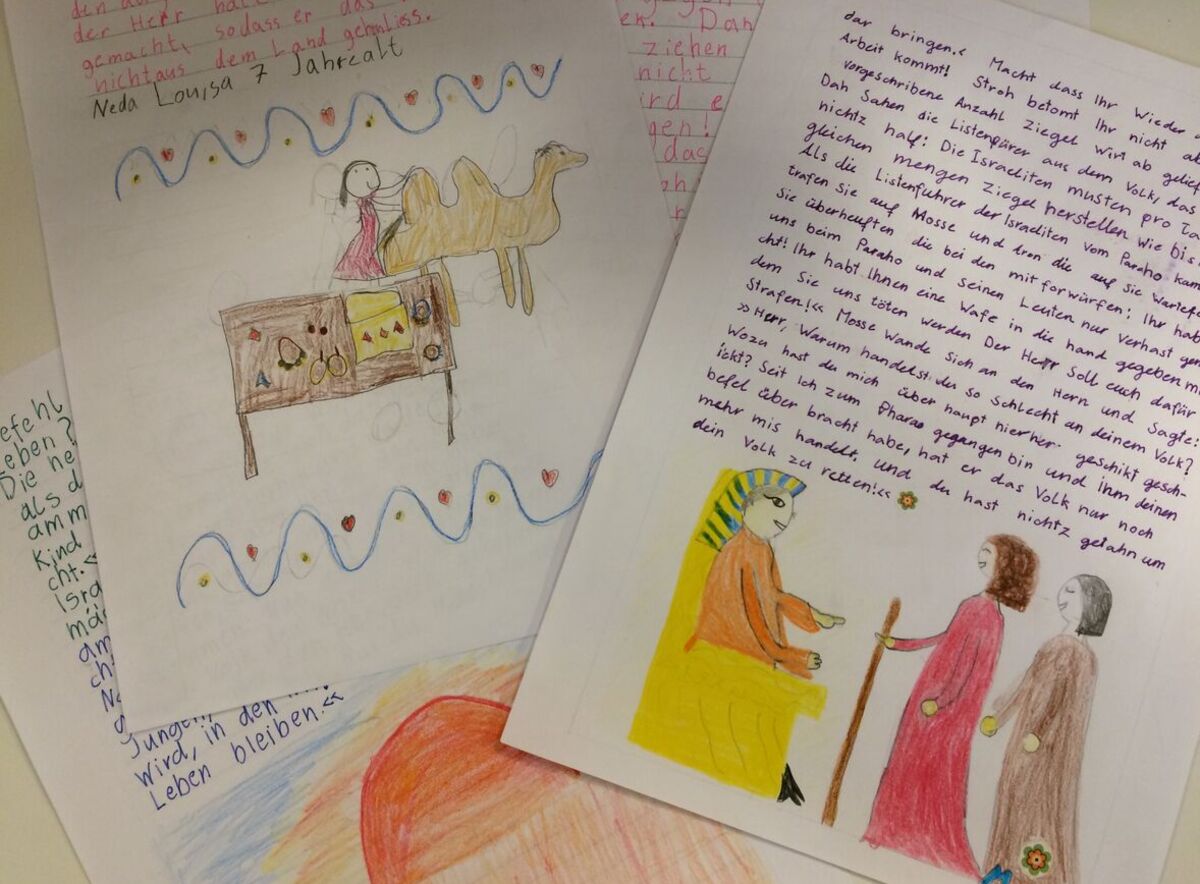 den
der Herr hat
gemacht, sodass er das
nicht aus dem Land gehnliess.
Neda Louisa 7 Jahre alt
Dah
ziehen
nicht
ird e
gen!
das
efehl
Leben?
Die he
als d
amm
Kind
cht.«
Isra
mäd
am
ch
Jungen,
Wird, in den
Leben bleiben.«
dar bringen.« Macht dass Ihr Wieder
Arbeit kommt! Stroh betomt Ihr nicht ab
vorgeschribene Anzahl Ziegel wirt ab gelief
Dah Sahen die Listenpürer aus dem Volk, das
nichtz half: Die Israeliten musten pro Ta
gleichen mengen Ziegel herstellen wie bis
Als die Listenführer der Israeliten vom Paraho kam
trafen Sie auf Mosse und dron die auf Sie
Sie überheuften die bei den mit forwürfen: Ihr hab
uns beim Paraho und seinen Leuten nur verhast gem
cht! Ihr habt Ihnen eine Wafe in die hand gegeben mi
dem Sie uns töten werden Der Herr Soll euch dafür
Strafen!« Mosse Wande Sich an den Hern und Sagte:
»Herr, Warum handelst du so Schlecht an deinem Volk?
Wozu hast du mich über haupt hierher geschikt gesch-
ickt? Seit Ich zum Pharao gegangen bin und ihm deinen
befel über bracht habe, hat er das Volk nur noch
mehr mis handelt, und du hast nichtz getahn um
dein Volk zu retten!«